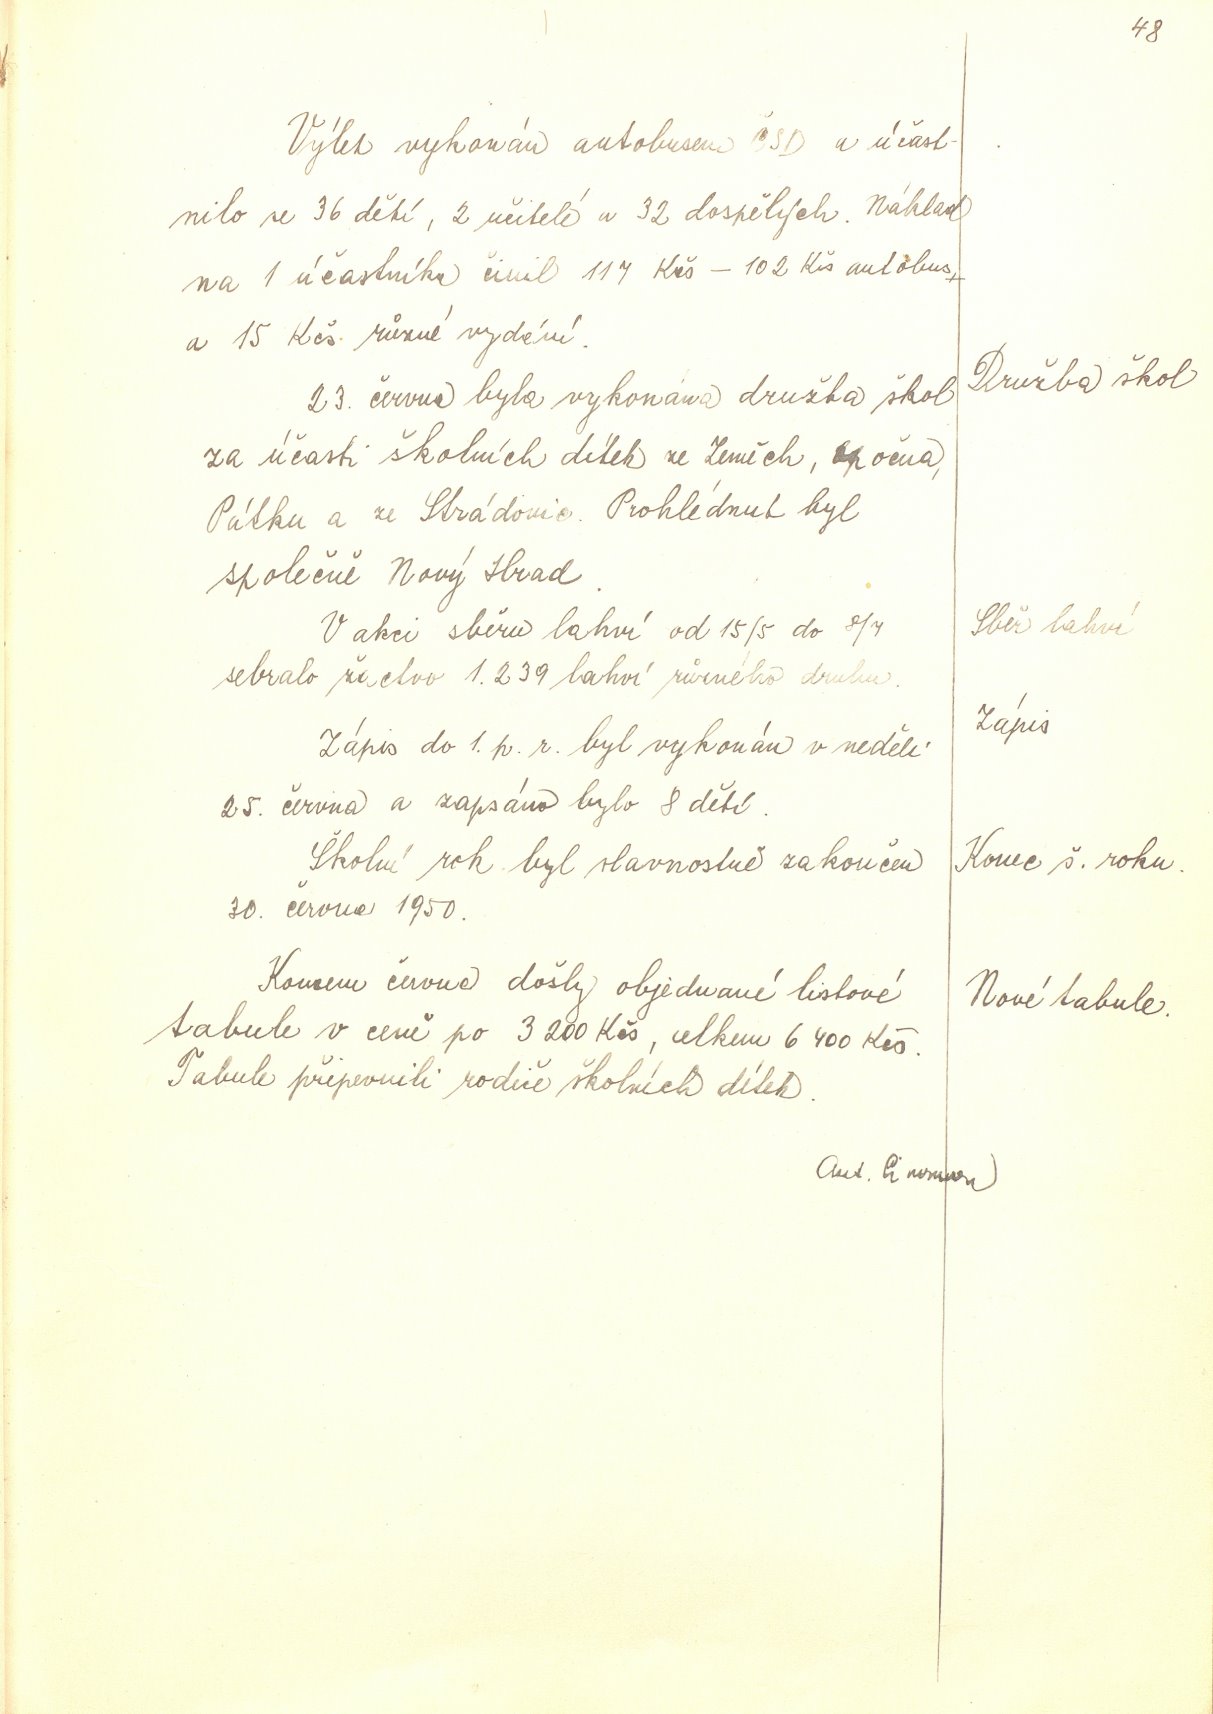 48
Výlet vykonán autobusem ČSD a účast-
nilo se 36 dětí, 2 učitelé a 32 dospělých. Náklad
na 1 účastníka činil 117 Kčs – 102 Kčs autobus,
a 15 Kčs různé vydání.
Družba škol
23. června byla vykonána družba škol
za účasti školních dítek ze Zeměch, Opočna,
Pátku a ze Strádonic. Prohlédnut byl
společně Nový Hrad.
Sběr lahví
V akci sběru lahví od 15/5 do 8/7
sebralo žactvo 1.239 lahví různého druhu.
Zápis
Zápis do 1. p. r. byl vykonán v neděli
25. června a zapsáno bylo 8 dětí.
Konec š. roku.
Školní rok byl slavnostně zakončen
30. června 1950.
Nové tabule.
Koncem června došly objednané listové
tabule v ceně po 3 200 Kčs, celkem 6 400 Kčs.
Tabule připevnili rodiče školních dítek.
Ant.